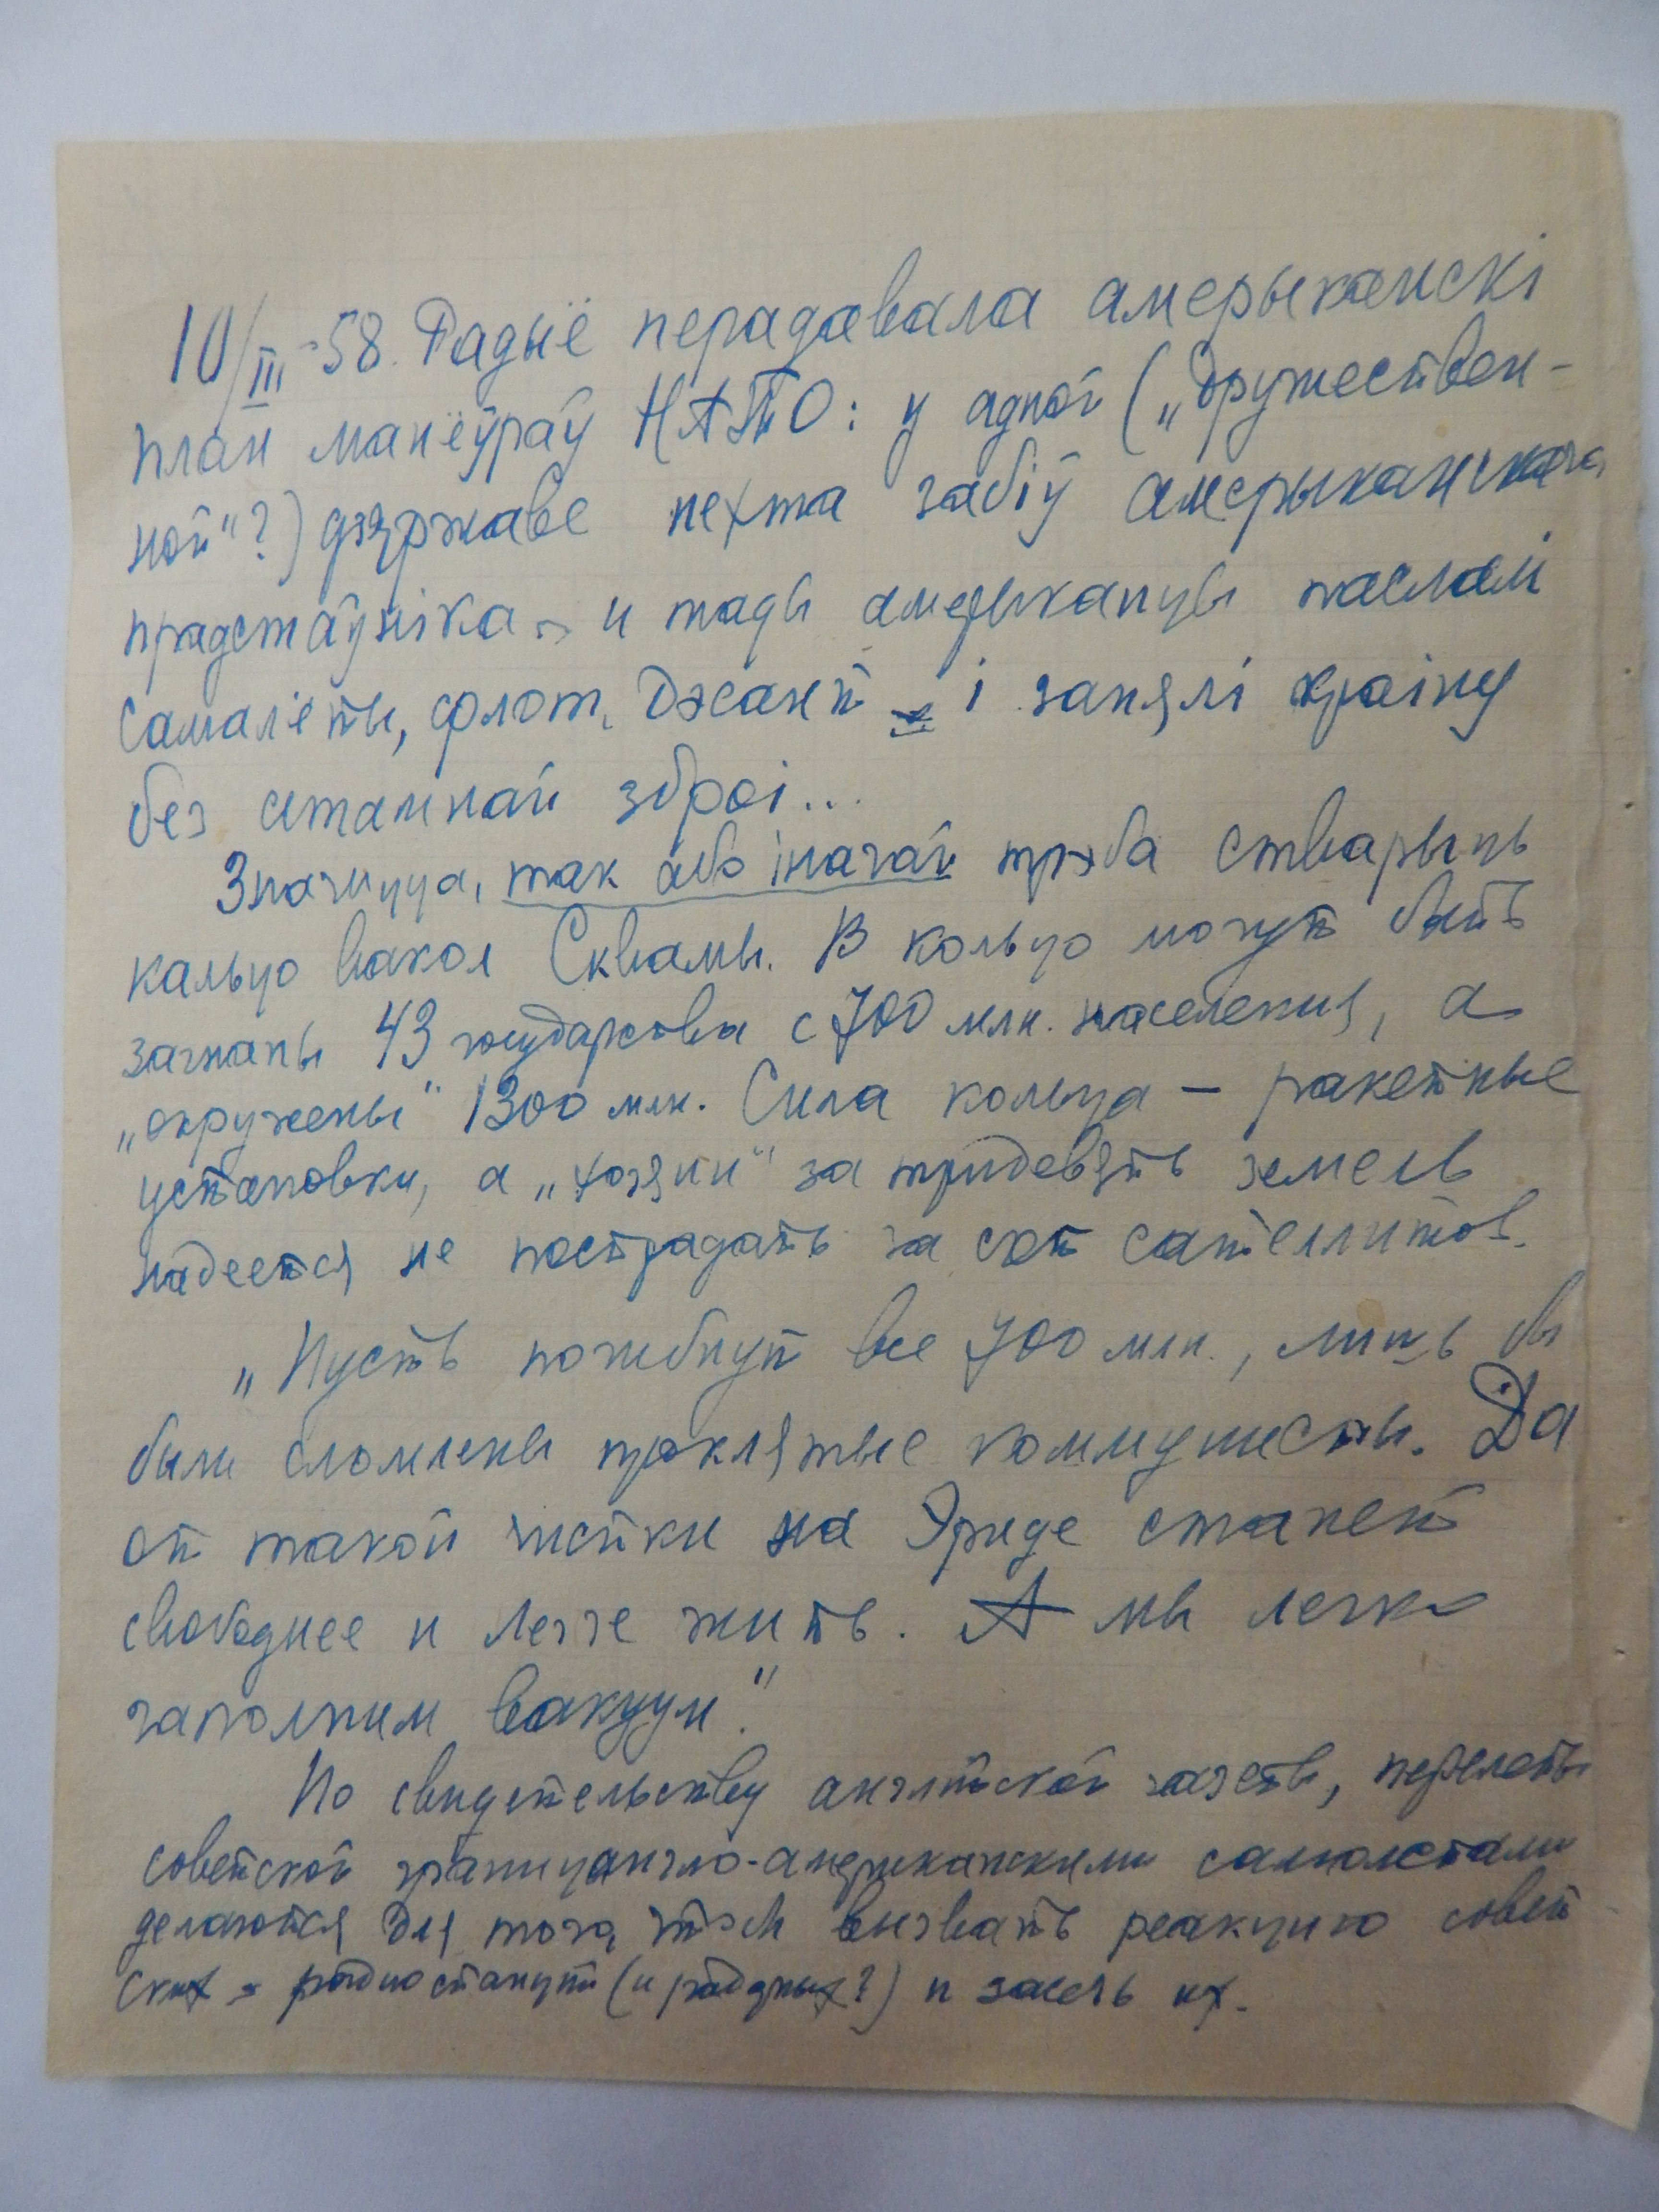 10/III-58. Радыё перадавала амерыканскі
план манёўраў НАТО: у адной („дружествен-
ной“?) дзяржаве нехта забіў амерыканскага
прадстаўніка – и тады амерыканцы паслалі
самалёты, флот, і занялі краіну
без атамнай зброі...
Значицца, так або іначай трэба стварыць
кальцо вакол Сквамы. В кольцо могут быть
загнаны 43 государства с 700 млн. населения, а
„окружены“ 1300 млн. Сила кольца – ракетные
установки, а „хозяин“ за тридевять земель
надеется не пострадать за счет сателлитов.
„Пусть погибнут все 700 млн., лишь бы
были сломлены проклятые коммунисты. Да
от такой чистки на Эриде станет
свободнее и легче жить. А мы легко
заполним вакуум.“
По свидетельству английской газеты, перелеты
советской границы англо-американскими самолетами
делаются для того, чтоб вызвать реакцию совет-
ских радиостанций (и ?) и засечь их.